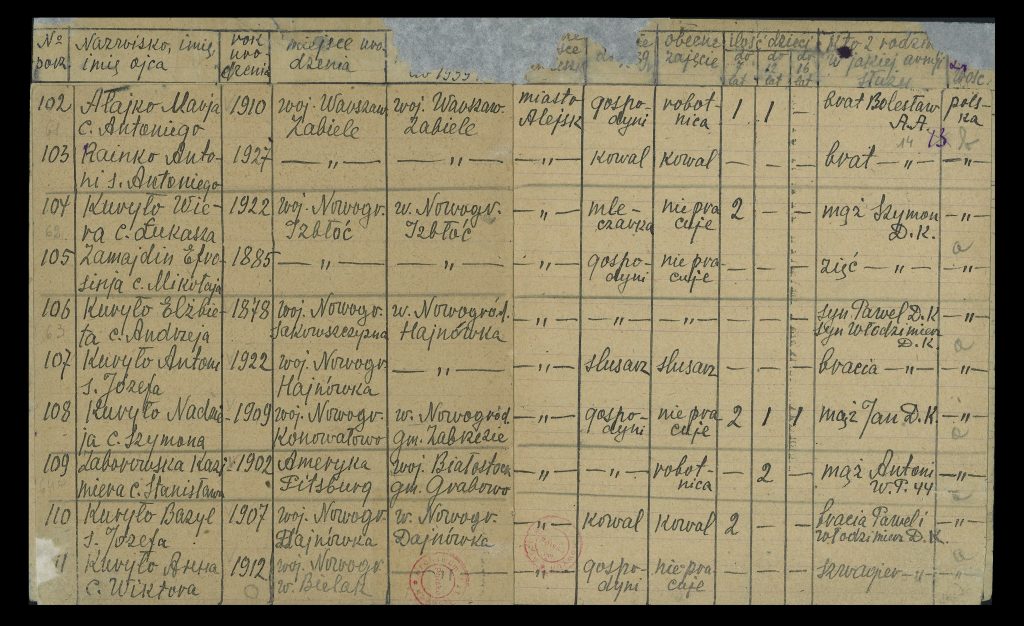 № porz. Nazwisko, imię, imię ojca rok uro- dzenia miejsce uro- dzenia obecne zajęcie ilość dzieci do lat do lat do 16 lat w jakiej armji służy
102 Ałajko Marja c. Antoniego 1910 woj. Warszaw. Zabiele woj. Warszaw. Zabiele miasto Alejsk gospo- dyni robot- nica 1 1 — brat Bolesław A.A. pols- ka
103 Rainko Anto- ni s. Antoniego 1927 — „ — — „ — — „ — kowal kowal — — — brat — „ — — „ —
104 Kuryło Wie- ra c. Łukasza 1922 woj. Nowogr. Izbłóć w. Nowogr. Izbłóć — „ — mle- czarka nie pra cuje 2 — — mąż Szymon D.K. — „ —
105 Zamajdin Efro- sinja c. Mikołaja 1885 — „ — — „ — — „ — gospo- dyni nie pra cuje — — — zięć — „ — — „ —
106 Kuryło Elżbie- ta c. Andrzeja 1878 woj. Nowogr. Jakowszczyzna w. Nowogród. Hajnówka — „ — — „ — — „ — — — — syn Paweł D.K syn Włodzimierz D.K. — „ —
107 Kuryło Antoni s. Józefa 1922 woj. Nowogr. Hajnówka — „ — — „ — slusarz slusarz — — — bracia — „ — — „ —
108 Kuryło Nadzie- ja c. Szymona 1909 woj. Nowogr. Konowałowo w. Nowogród gm. Zabrzezie — „ — gospo- dyni nie pra cuje 2 1 1 mąż Jan D.K. — „ —
109 Zaborowska Kazi miera c. Stanisława 1902 Ameryka Pitsburg woj. Białostock gm. Grabowo — „ — — „ — robot- nica — 2 — mąż Antoni W.P. 44 — „ —
110 Kuryło Bazyl s. Józefa 1907 woj. Nowogr. Hajnówka w. Nowogr. Dajnówka — „ — kowal kowal 2 — — bracia Paweł i Włodzimierz D.K. — „ —
11 Kuryło Anna c. Wiktora 1912 woj. Nowogr. w. Bielak — „ — gospo- dyni nie pra- cuje — — — szwagier — „ — — „ —